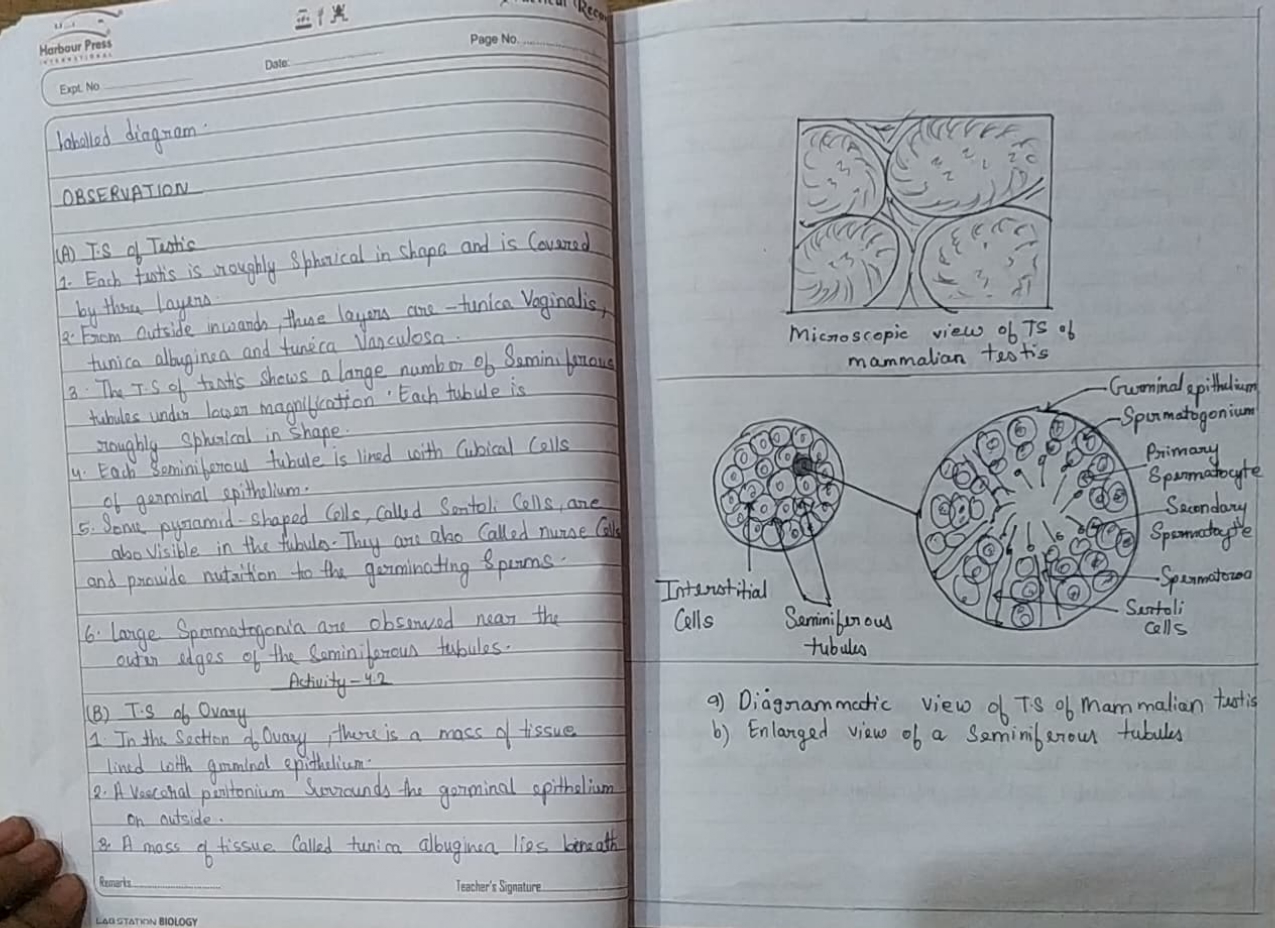 Harbour Press
INTERNATIONAL
Expt. No
Date:
Page No.
labelled diagram.
OBSERVATION
(A) T.S of Testis
1. Each testis is roughly Spherical in shape and is Covered
by three layers.
2. From outside inwards, these layers are - tunica Vaginalis,
tunica albuginea and tunica Vasculosa.
3. The T.S of testis shows a large number of Seminiferous
tubules under lower magnification. Each tubule is
roughly Spherical in shape.
4. Each Seminiferous tubule is lined with Cubical Cells
of germinal epithelium.
5. Some pyramid-shaped Cells, called Sertoli Cells, are
also visible in the tubule. They are also Called nurse Cells
and provide nutrition to the germinating Sperms.
6. Large Spermatogonia are observed near the
outer edges of the Seminiferous tubules.
Activity-4.2
(B) T.S of Ovary
1. In the Section of Ovary, there is a mass of tissue
lined with germinal epithelium.
2. A visceral peritonium Surrounds the germinal epithelium
on outside.
3. A mass of tissue Called tunica albuginea lies beneath
Remarks
Teacher's Signature
LAB STATION BIOLOGY
Microscopic view of TS of
mammalian testis
Germinal epithelium
Spermatogonium
Primary
Spermatocyte
Secondary
Spermatocyte
Spermatozoa
Sertoli
Cells
Interstitial
Cells
Seminiferous
tubules
a) Diagrammatic view of T.S of Mammalian testis
b) Enlarged view of a Seminiferous tubules